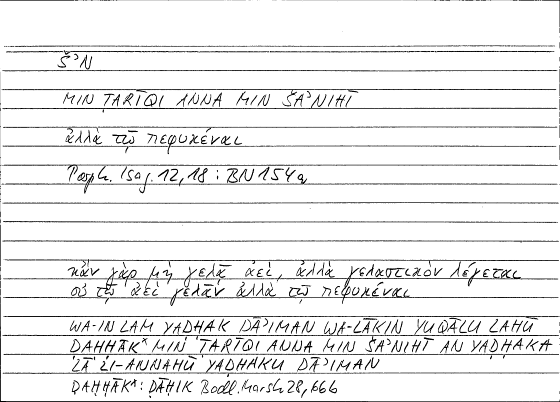 ŠʾN
MIN ṬARĪQI ANNA MIN ŠAʾNIHĪ
ἀλλὰ τῷ πεφυκέναι
Porph. Isag. 12,18 : BN 154a
κἂν γὰρ μὴ γελᾷ ἀεί, ἀλλὰ γελαστικὸν λέγεται
οὐ τῷ ἀεὶ γελᾶν ἀλλὰ τῷ πεφυκέναι
WA-IN LAM YAḌḤAK DĀʾIMAN WA-LĀKIN YUQĀLU LAHŪ
ḌAḤḤĀK* MIN ṬARĪQI ANNA MIN ŠAʾNIHĪ AN YAḌḤAKA
LĀ LI-ANNAHŪ YAḌḤAKU DĀʾIMAN
ḌAḤḤĀK*: ḌĀḤIK Bodl. Marsh 28, 66b